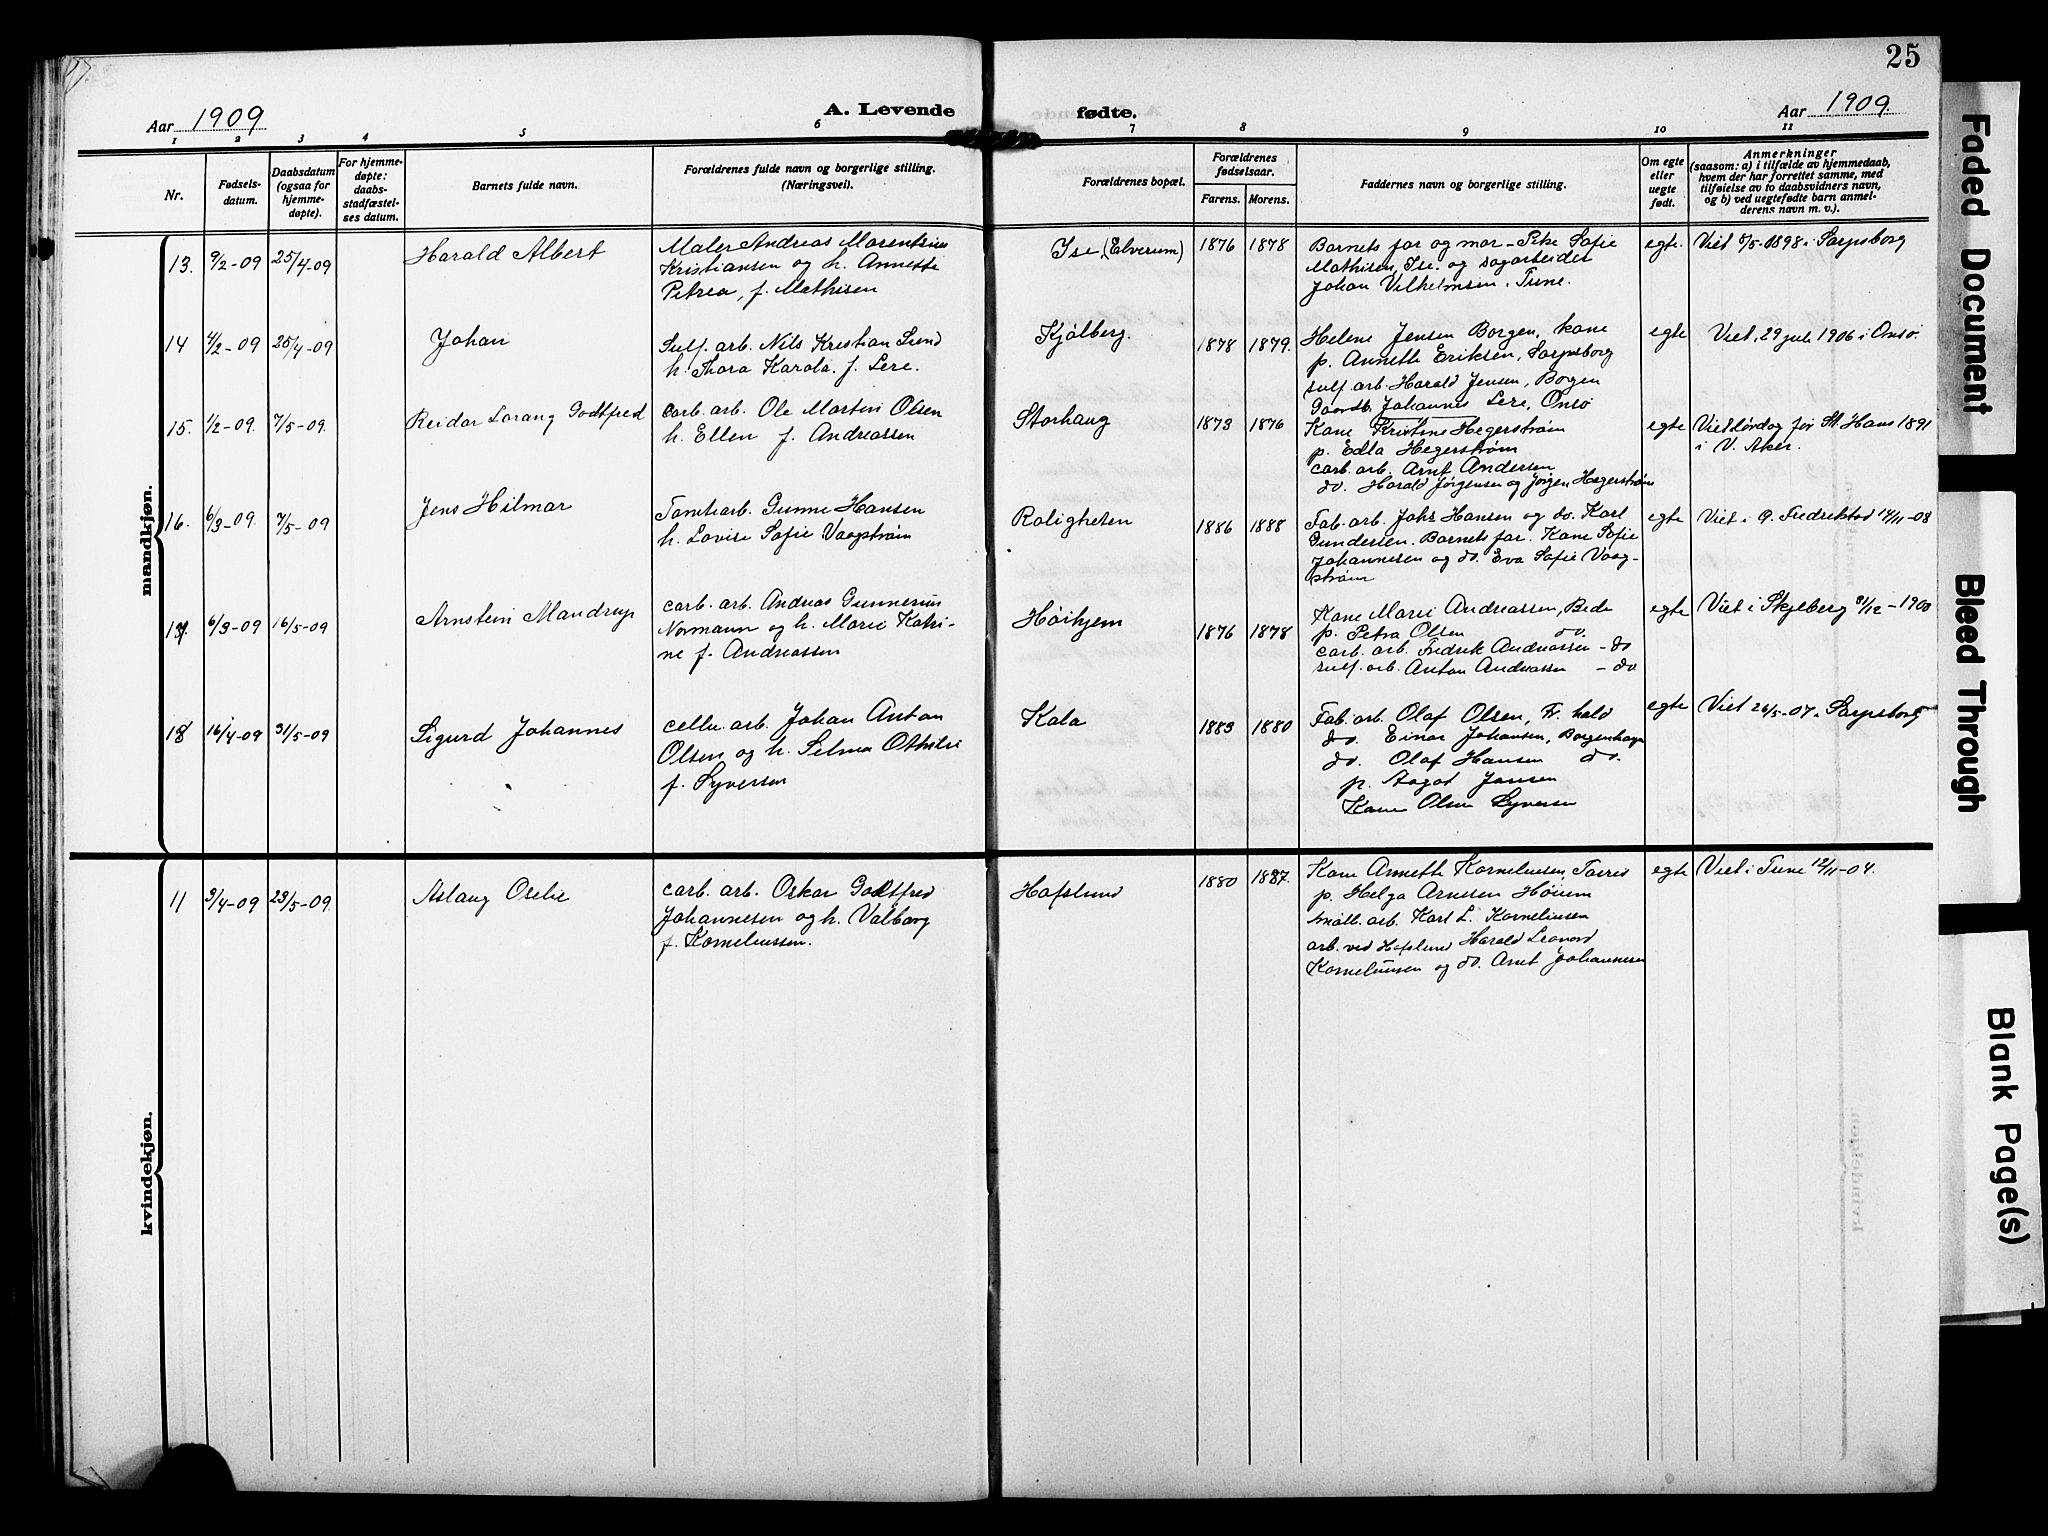 25
Aar 1909
A. Levende
fødte.
Aar 1909.
1 2 3 4 5 6 7 8 9 10 11
Nr.
Fødsels-
datum.
Daabsdatum
(ogsaa for
hjemme-
døpte).
For hjemme-
døpte:
daabs-
stadfæstel-
ses datum.
Barnets fulde navn.
Forældrenes fulde navn og borgerlige stilling.
(Næringsvei).
Forældrenes bopæl.
Forældrenes
fødselsaar.
Farens. Morens.
Faddernes navn og borgerlige stilling.
Om egte
eller
uegte
født.
Anmerkninger
(saasom: a) i tilfælde av hjemmedaab,
hvem der har forrettet samme, med
tilføielse av to daabsvidners navn,
og b) ved uegtefødte barn anmel-
derens navn m. v.).
mandkjøn.
13. 9/2-09 25/4-09
Harald Albert
Maler Andreas Marentzius
Kristiansen og h. Annette
Petrea, f. Mathisen
Ise, (Elverum)
1876 1878
Barnets far og mor - Pike Sofie
Mathisen, Ise. og sagarbeider
Johan Vilhelmsen. Tune.
egte.
Viet 8/5-1898 i Sarpsborg
14 4/2-09 25/4-09
Johan
Sulf. arb. Nils Kristian Lund
h. Thora Karola. f. Lere.
Kjølberg.
1878 1879.
Helene Jensen Borgen, kone
p. Anneth Eriksen, Sarpsborg
sulf. arb. Harald Jensen, Borgen
Gaardb. Johannes Lere, Onsø
egte
Viet, 29 juli 1906 i Onsø.
15. 1/2-09. 7/5-09.
Reidar Lorang Godtfred
carb. arb. Ole Martin Olsen
h. Ellen f. Andreassen
Storhaug
1873 1876
Kone Kristine Hegerstrøm
p. Edla Hegerstrøm
carb. arb. Arnt Andersen
do. Harald Jørgensen og Jørgen Hegerstrøm
egte
Viet lørdag før St. Hans 1891
i V. Aker.
16. 6/3-09. 7/5-09
Jens Hilmar
Tomtearb. Gunne Hansen
h. Lovise Sofie Vaagstrøm
Roligheten
1886 1888
Fab. arb. Johs Hansen og do. Karl
Gundersen. Barnets far. Kone Sofie
Johannesen og do. Eva Sofie Vaag-
strøm
egte
Viet i G. Fredrikstad 14/11-08
17. 6/3-09 16/5-09
Arnstein Mandrup
carb. arb. Andreas Gunnerius
Normann og h. Marie Katri-
ne f. Andreassen
Høihjem
1876 1878
Kone Marie Andreassen, Bede
p. Petra Olsen do.
carb. arb. Fredrik Andreassen - do
sulf. arb. Anton Andreassen - do
egte
Viet i Skjeberg 31/12-1900
18 16/4-09 31/5-09
Sigurd Johannes
cellu. arb. Johan Anton
Olsen og h. Selma Othilie
f. Syversen
Kala
1883 1880
Fab. arb. Olaf Olsen, Fr. hald
do. Einar Johansen, Borgenhaugen
do. Olaf Hansen do.
p. Aagot Jansen
Kone Olsen Syversen
egte
Viet 26/5-07 i Sarpsborg
kvindekjøn.
11 3/4-09 23/5-09.
Aslaug Oselie
carb. arb. Oskar Godtfred
Johannesen og h. Valborg
f. Korneliussen.
Hafslund
1880 1887.
Kone Anneth Korneliusen,
p. Helga Arnesen Høiem
smølt. arb. Karl L. Korneliusen
arb. ved Hafslund Harald Leonard
Korneliusen og do. Arnt Johannesen
egte
Viet i Tune 12/11-04.
Faded Document
Bleed Through
Blank Page(s)